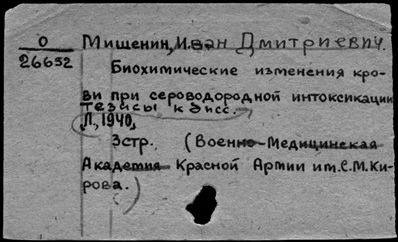 О
26652
Мищенин, Иван Дмитриевич.
Биохимические изменения кро-
ви при сероводородной интоксикации
Тезисы к дисс.
Л, 1940,
3стр. (Военно-Медицинская
Академия Красной Армии им. С.М.Ки-
рова.)